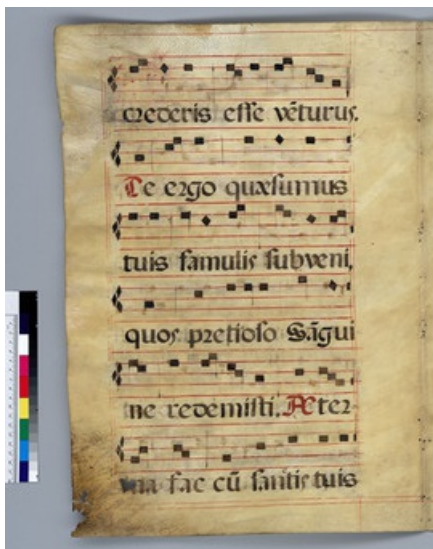 crederis esse vẽturus.
Te ergo quæsumus
tuis famulis subveni,
quos pretioso Sãgui
ne redemisti. Æter-
na fac cũ santis tuis